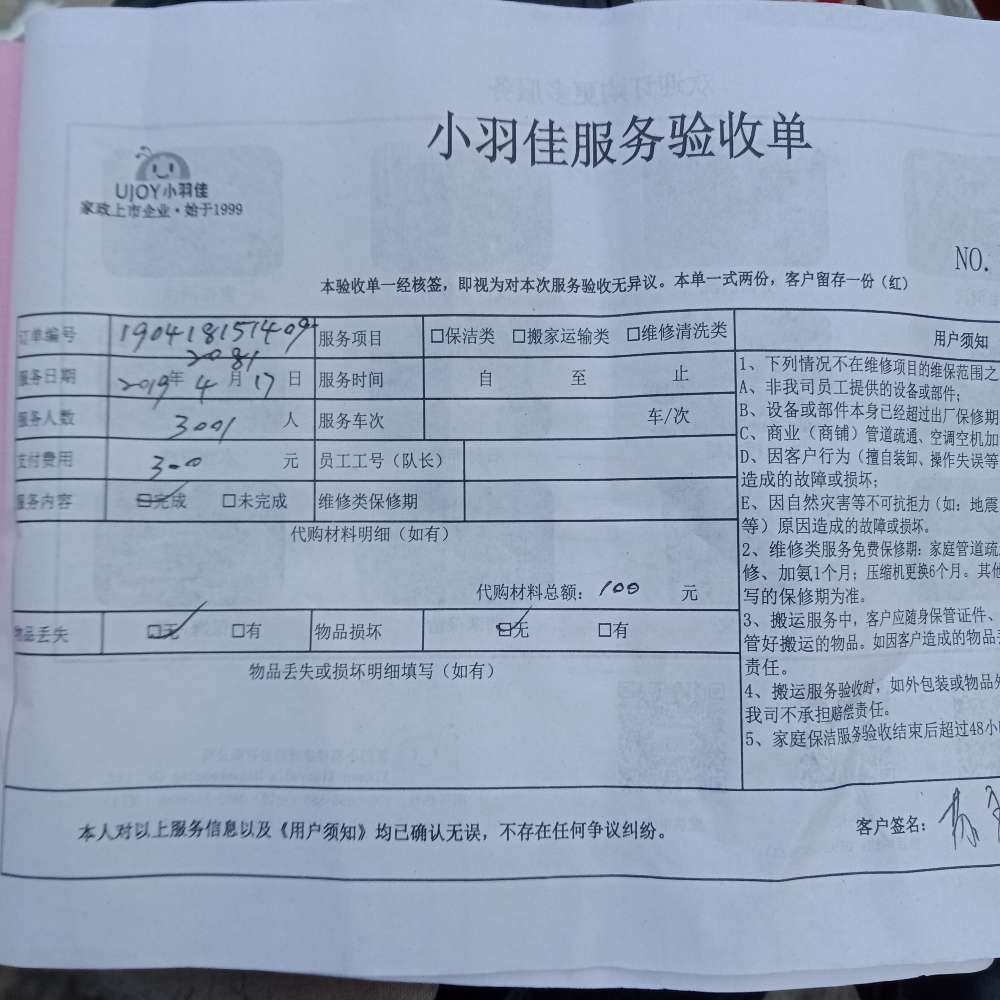 小羽佳服务验收单
UJOY小羽佳
家政上市企业·始于1999
NO.
本验收单一经核签，即视为对本次服务验收无异议。本单一式两份，客户留存一份（红）
订单编号 190418151409 2081 服务项目 □保洁类 □搬家运输类 □维修清洗类
服务日期 2019年 4 月 17 日 服务时间 自 至 止
服务人数 人 服务车次 车/次
支付费用 300 元 员工工号（队长）
服务内容 □完成 □未完成 维修类保修期
代购材料明细（如有）
代购材料总额：100 元
物品丢失 □无 □有 物品损坏 □无 □有
物品丢失或损坏明细填写（如有）
用户须知
1、下列情况不在维修项目的维保范围之
A、非我司员工提供的设备或部件；
B、设备或部件本身已经超过出厂保修期
C、商业（商铺）管道疏通、空调空机加
D、因客户行为（擅自装卸、操作失误等
造成的故障或损坏；
E、因自然灾害等不可抗拒力（如：地震
等）原因造成的故障或损坏。
2、维修类服务免费保修期：家庭管道疏
修、加氨1个月；压缩机更换6个月。其他
写的保修期为准。
3、搬运服务中，客户应随身保管证件、
管好搬运的物品。如因客户造成的物品丢
责任。
4、搬运服务验收时，如外包装或物品外
我司不承担赔偿责任。
5、家庭保洁服务验收结束后超过48小
本人对以上服务信息以及《用户须知》均已确认无误，不存在任何争议纠纷。
客户签名：